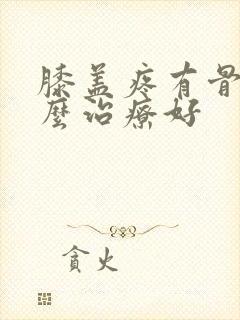 膝盖疼有骨
麼治療好
貪火